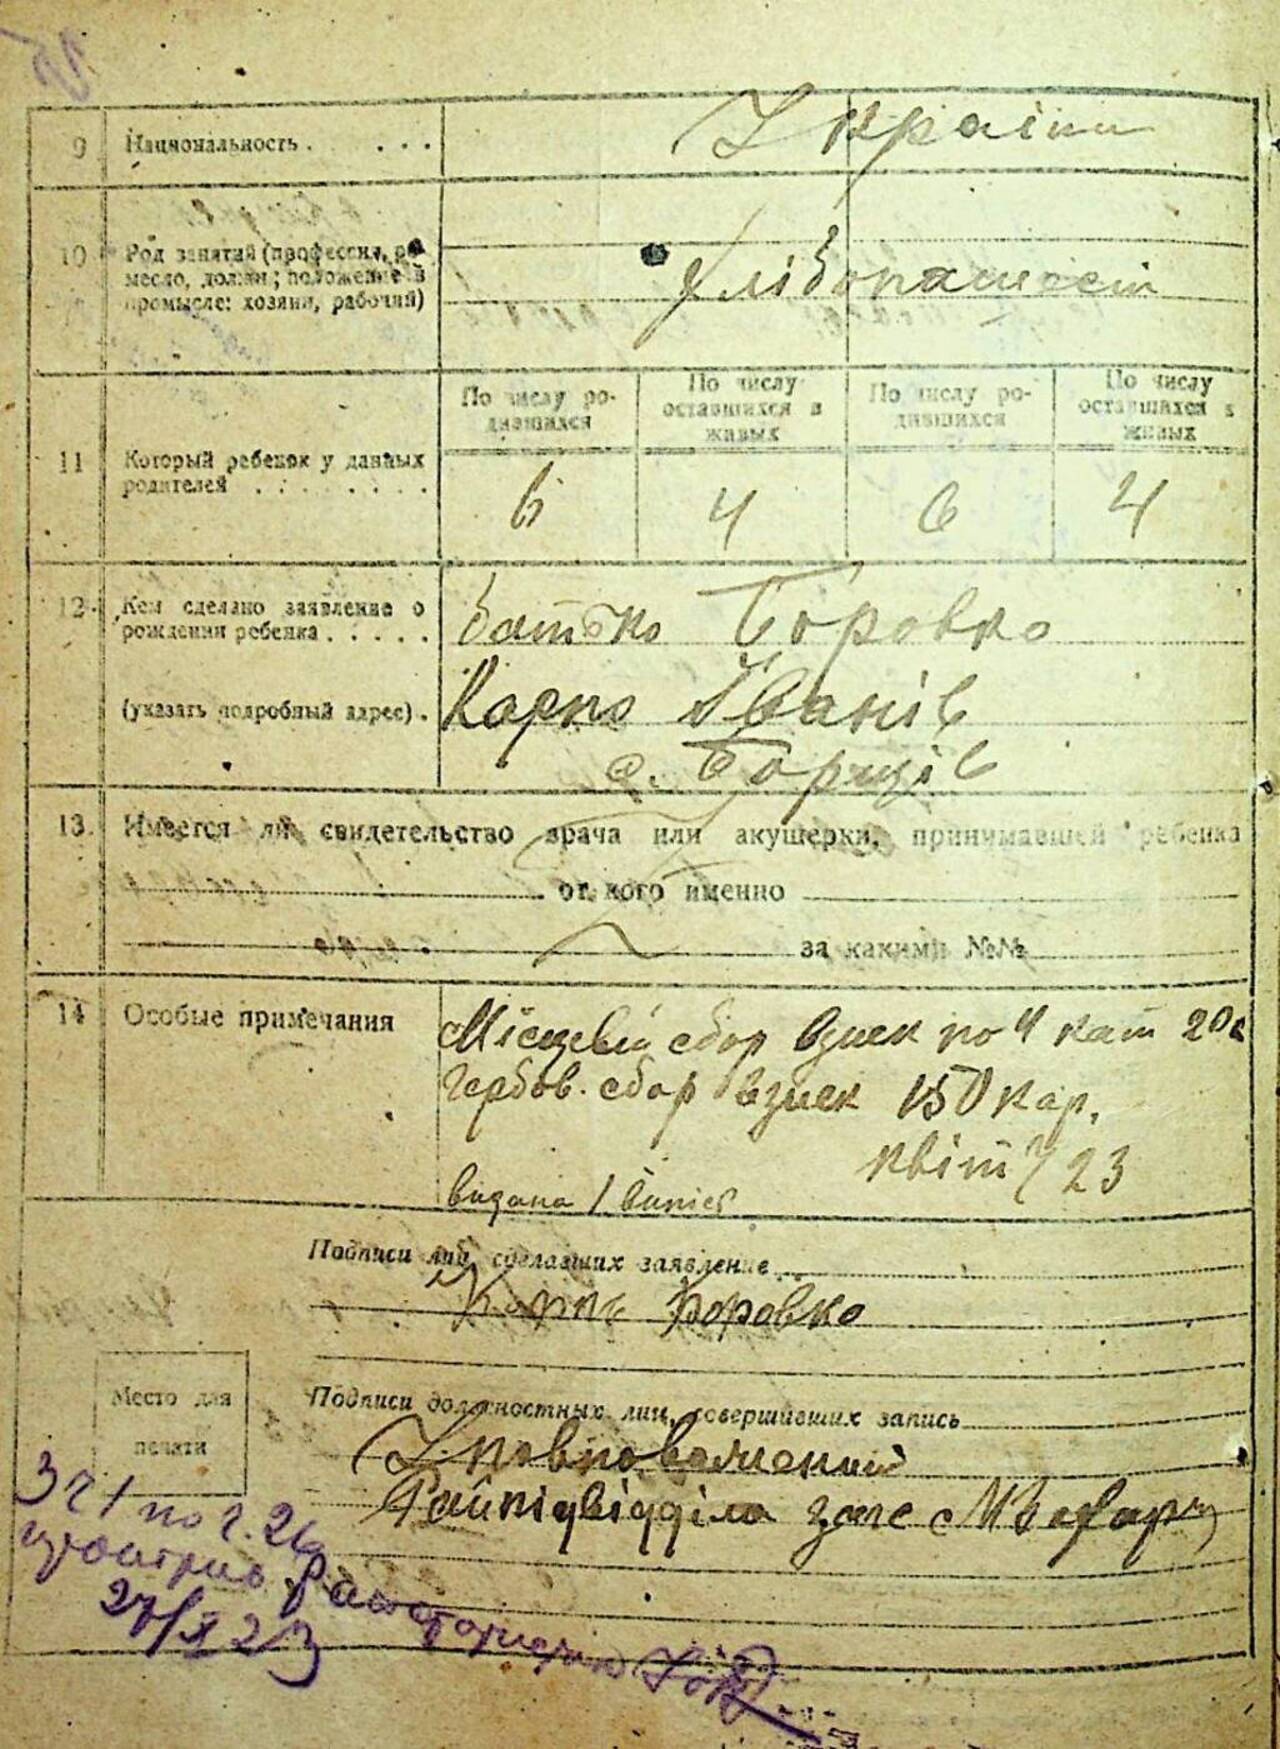 9 Национальность . . . . Украіни
10 Род занятий (профессия, ре-
месло, должн; положение в
промысле: хозяин, рабочий)
Хлібопашест
По числу ро-
дившихся
По числу
оставшихся в
живых
По числу ро-
дившихся
По числу
оставшихся в
живых
11 Который ребенок у данных
родителей . . . . . . .
6 4 6 4
12. Кем сделано заявление о
рождении ребенка . . . . .
батько Боровко
(указать подробный адрес) . Карпо Іванів
с. Борщів
13. Имеется ли свидетельство врача или акушерки, принимавшей ребенка
от кого именно
за какими №№
14 Особые примечания
Місцевий сбор взиск по 4 кат 20
гербов. сбор взиск 150 кар.
квіт 23
видана
Подписи лиц, сделавших заявление
Карпо Боровко
Место для
печати
Подписи должностных лиц, совершивших запись
Уповноважений
Райпідвідділа загс
3 21 по г. 26
27/X 23